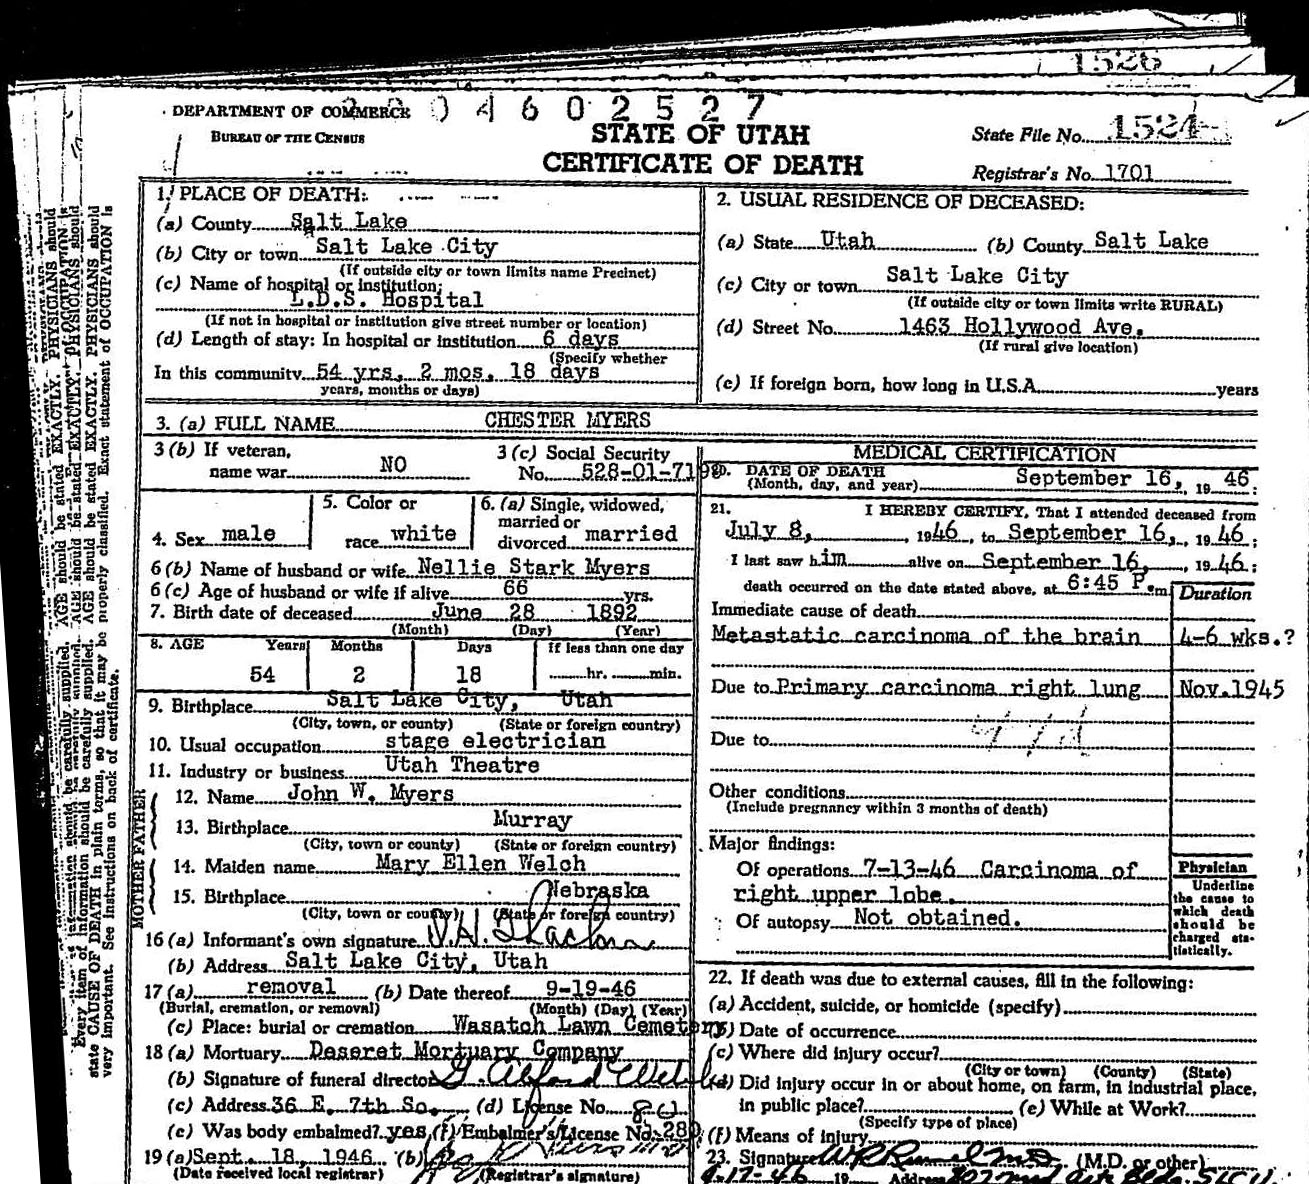 1526
DEPARTMENT OF COMMERCE
BUREAU OF THE CENSUS
0 4 6 0 2 5 2 7
STATE OF UTAH
CERTIFICATE OF DEATH
State File No. 1524
Registrar's No. 1701
1. PLACE OF DEATH:
(a) County Salt Lake
(b) City or town Salt Lake City
(If outside city or town limits name Precinct)
(c) Name of hospital or institution:
L.D.S. Hospital
(If not in hospital or institution give street number or location)
(d) Length of stay: In hospital or institution 6 days
(Specify whether
In this community 54 yrs, 2 mos, 18 days
years, months or days)
2. USUAL RESIDENCE OF DECEASED:
(a) State Utah (b) County Salt Lake
(c) City or town Salt Lake City
(If outside city or town limits write RURAL)
(d) Street No. 1463 Hollywood Ave.
(If rural give location)
(e) If foreign born, how long in U.S.A. years
3. (a) FULL NAME CHESTER MYERS
3 (b) If veteran,
name war NO
3 (c) Social Security
No. 528-01-71
4. Sex male
5. Color or
race white
6. (a) Single, widowed,
married or
divorced married
6 (b) Name of husband or wife Nellie Stark Myers
6 (c) Age of husband or wife if alive 66 yrs.
7. Birth date of deceased June 28 1892
(Month) (Day) (Year)
8. AGE Years Months Days If less than one day
54 2 18 hr. min.
9. Birthplace Salt Lake City, Utah
(City, town, or county) (State or foreign country)
10. Usual occupation stage electrician
11. Industry or business Utah Theatre
FATHER
12. Name John W. Myers
13. Birthplace Murray
(City, town or county) (State or foreign country)
MOTHER
14. Maiden name Mary Ellen Welch
15. Birthplace Nebraska
(City, town or county) (State or foreign country)
16 (a) Informant's own signature
(b) Address Salt Lake City, Utah
17 (a) removal (b) Date thereof 9-19-46
(Burial, cremation, or removal) (Month) (Day) (Year)
(c) Place: burial or cremation Wasatch Lawn Cemetery
18 (a) Mortuary Deseret Mortuary Company
(b) Signature of funeral director
(c) Address 36 E. 7th So. (d) License No. 80
(e) Was body embalmed? yes (f) Embalmer's License No. 280
19 (a) Sept. 18, 1946 (b)
(Date received local registrar) (Registrar's signature)
MEDICAL CERTIFICATION
20. DATE OF DEATH
(Month, day, and year) September 16, 19 46:
21. I HEREBY CERTIFY, That I attended deceased from
July 8, 1946, to September 16, 1946;
I last saw him alive on September 16, 1946;
death occurred on the date stated above, at 6:45 P.m
Duration
Immediate cause of death
Metastatic carcinoma of the brain 4-6 wks.?
Due to Primary carcinoma right lung Nov.1945
Due to
Other conditions
(Include pregnancy within 3 months of death)
Major findings:
Of operations 7-13-46 Carcinoma of
right upper lobe.
Of autopsy Not obtained.
Physician
Underline
the cause to
which death
should be
charged sta-
tistically.
22. If death was due to external causes, fill in the following:
(a) Accident, suicide, or homicide (specify)
(b) Date of occurrence
(c) Where did injury occur?
(City or town) (County) (State)
(d) Did injury occur in or about home, on farm, in industrial place,
in public place? (e) While at Work?
(Specify type of place)
(f) Means of injury
23. Signature (M.D. or other)
9-17-46 19 Address
Every item of information should be carefully supplied. AGE should be stated EXACTLY. PHYSICIANS should
state CAUSE OF DEATH in plain terms, so that it may be properly classified. Exact statement of OCCUPATION is
very important. See instructions on back of certificate.